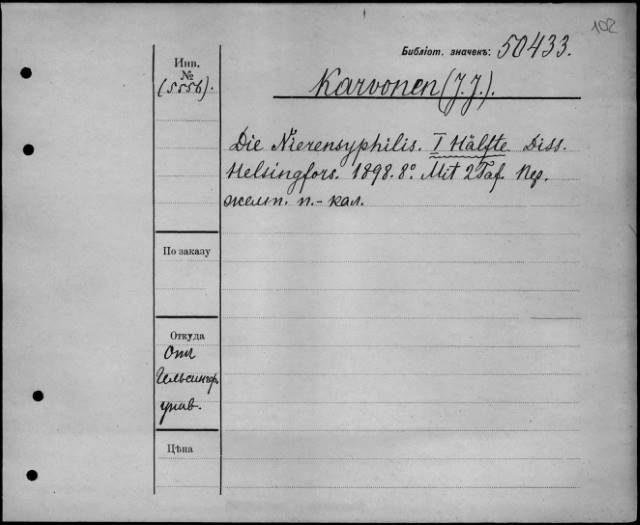 102
Библіот. значекъ: 50433.
Инв.
№
(5556).
Karvonen (J. J.).
Die Nierensyphilis. I Hälfte Diss.
Helsingfors. 1898. 8º. Mit 2 Taf. Пер.
желт. п.-кал.
По заказу
Откуда
Отъ
Гельсингф.
унив.
Цѣна